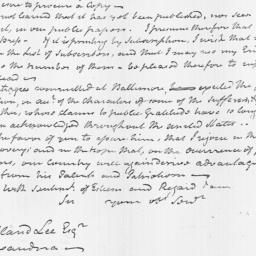 me to procure a Copy—
not learned that it has yet been published, nor seen
it, in our public papers. I presume therefor that
Press— If it is printing by Subscription, I wish that
the list of Subscribers, and that I may use my
to the number of them — be pleased therefore to
lead
outrages committed at Baltimore, exceed the
on, in acct. of the Characters of some of the sufferers,
other, whose claims to public Gratitude have so long
been acknowledged throughout the United States.—
the favor of you to assure him, that I rejoice in the
recovery; and in the hope that, on the occurrence of
our Country will again derive advantage
from his Talents and Patriotism
With Sentiments of Esteem and Regard I am
Sir your obt. Servt.
land Lee Esqr.
xandria—